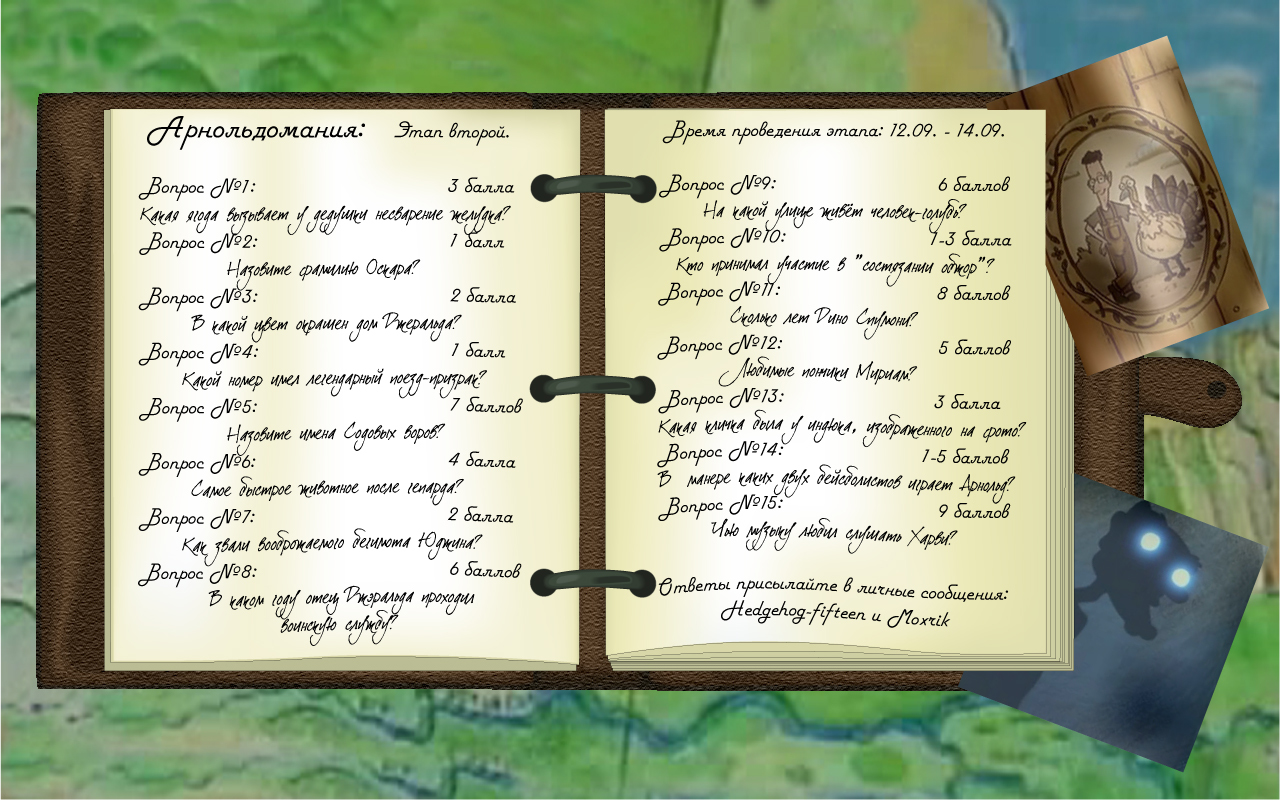 Арнольдомания: Этап второй.
Вопрос №1: 3 балла
Какая ягода вызывает у дедушки несварение желудка?
Вопрос №2: 1 балл
Назовите фамилию Оскара?
Вопрос №3: 2 балла
В какой цвет окрашен дом Джеральда?
Вопрос №4: 1 балл
Какой номер имел легендарный поезд-призрак?
Вопрос №5: 7 баллов
Назовите имена Содовых воров?
Вопрос №6: 4 балла
Самое быстрое животное после гепарда?
Вопрос №7: 2 балла
Как звали воображаемого бегимота Юджина?
Вопрос №8: 6 баллов
В каком году отец Джэральда проходил
воинскую службу?
Время проведения этапа: 12.09. - 14.09.
Вопрос №9: 6 баллов
На какой улице живёт человек-голубь?
Вопрос №10: 1-3 балла
Кто принимал участие в "состязании обжор"?
Вопрос №11: 8 баллов
Сколько лет Дино Спумони?
Вопрос №12: 5 баллов
Любимые пончики Мириам?
Вопрос №13: 3 балла
Какая кличка была у индюка, изображенного на фото?
Вопрос №14: 1-5 баллов
В манере каких двух бейсболистов играет Арнольд?
Вопрос №15: 9 баллов
Чью музыку любил слушать Харви?
Ответы присылайте в личные сообщения:
Hedgehog-fifteen и Moxrik